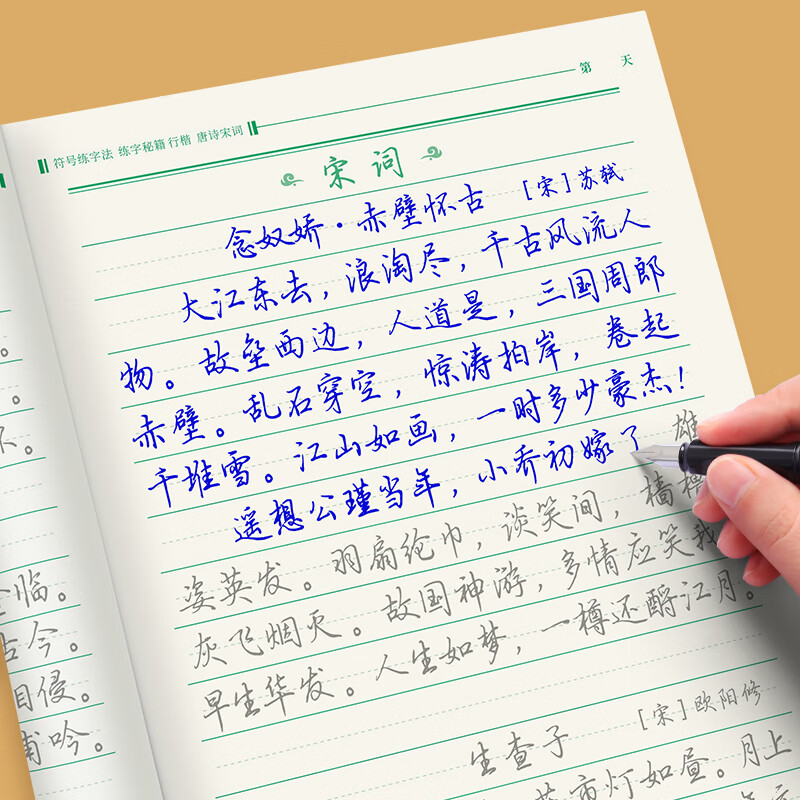 符号练字法 练字秘籍 行楷 唐诗宋词
第 天
宋词
念奴娇·赤壁怀古 [宋]苏轼
大江东去，浪淘尽，千古风流人
物。故垒西边，人道是，三国周郎
赤壁。乱石穿空，惊涛拍岸，卷起
千堆雪。江山如画，一时多少豪杰！
遥想公瑾当年，小乔初嫁了 雄
姿英发。羽扇纶巾，谈笑间，樯
灰飞烟灭。故国神游，多情应笑我
早生华发。人生如梦，一樽还酹江月。
生查子 [宋]欧阳修
市灯如昼。月上
临。
古今。
侵。
吟。